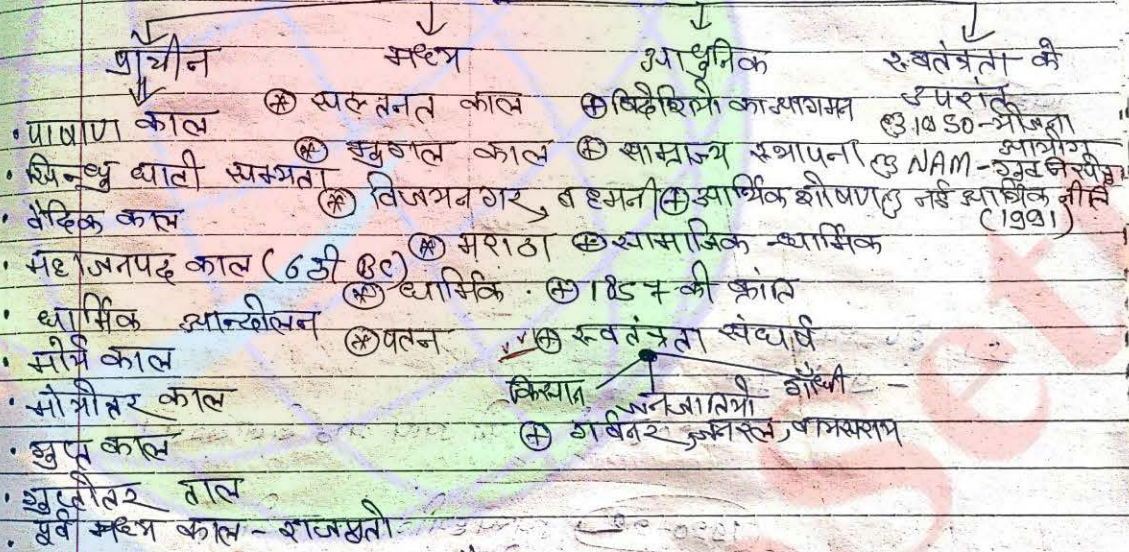 प्राचीन मध्य आधुनिक स्वतंत्रता के उपरांत
• पाषाण काल
• सिन्धु घाटी सभ्यता
• वैदिक काल
• महाजनपद काल (6 ठी BC)
• धार्मिक आन्दोलन
• मौर्य काल
• मौर्योत्तर काल
• गुप्त काल
• गुप्तोत्तर काल
• पूर्व मध्य काल - राजपूतो
* सल्तनत काल
* मुगल काल
* विजयनगर, बहमनी
* मराठा
* धार्मिक
* पतन
+ विदेशियो का आगमन
+ साम्राज्य स्थापना
+ आर्थिक शोषण
+ सामाजिक - धार्मिक
+ 1857 की क्रांति
+ स्वतंत्रता संघर्ष
किसान जनजातियो गाँधी
+ गर्वनर जनरल, वायसराय
1950 - योजना आयोग
NAM - गुट निरपेक्ष
नई आर्थिक नीति (1991)
Set